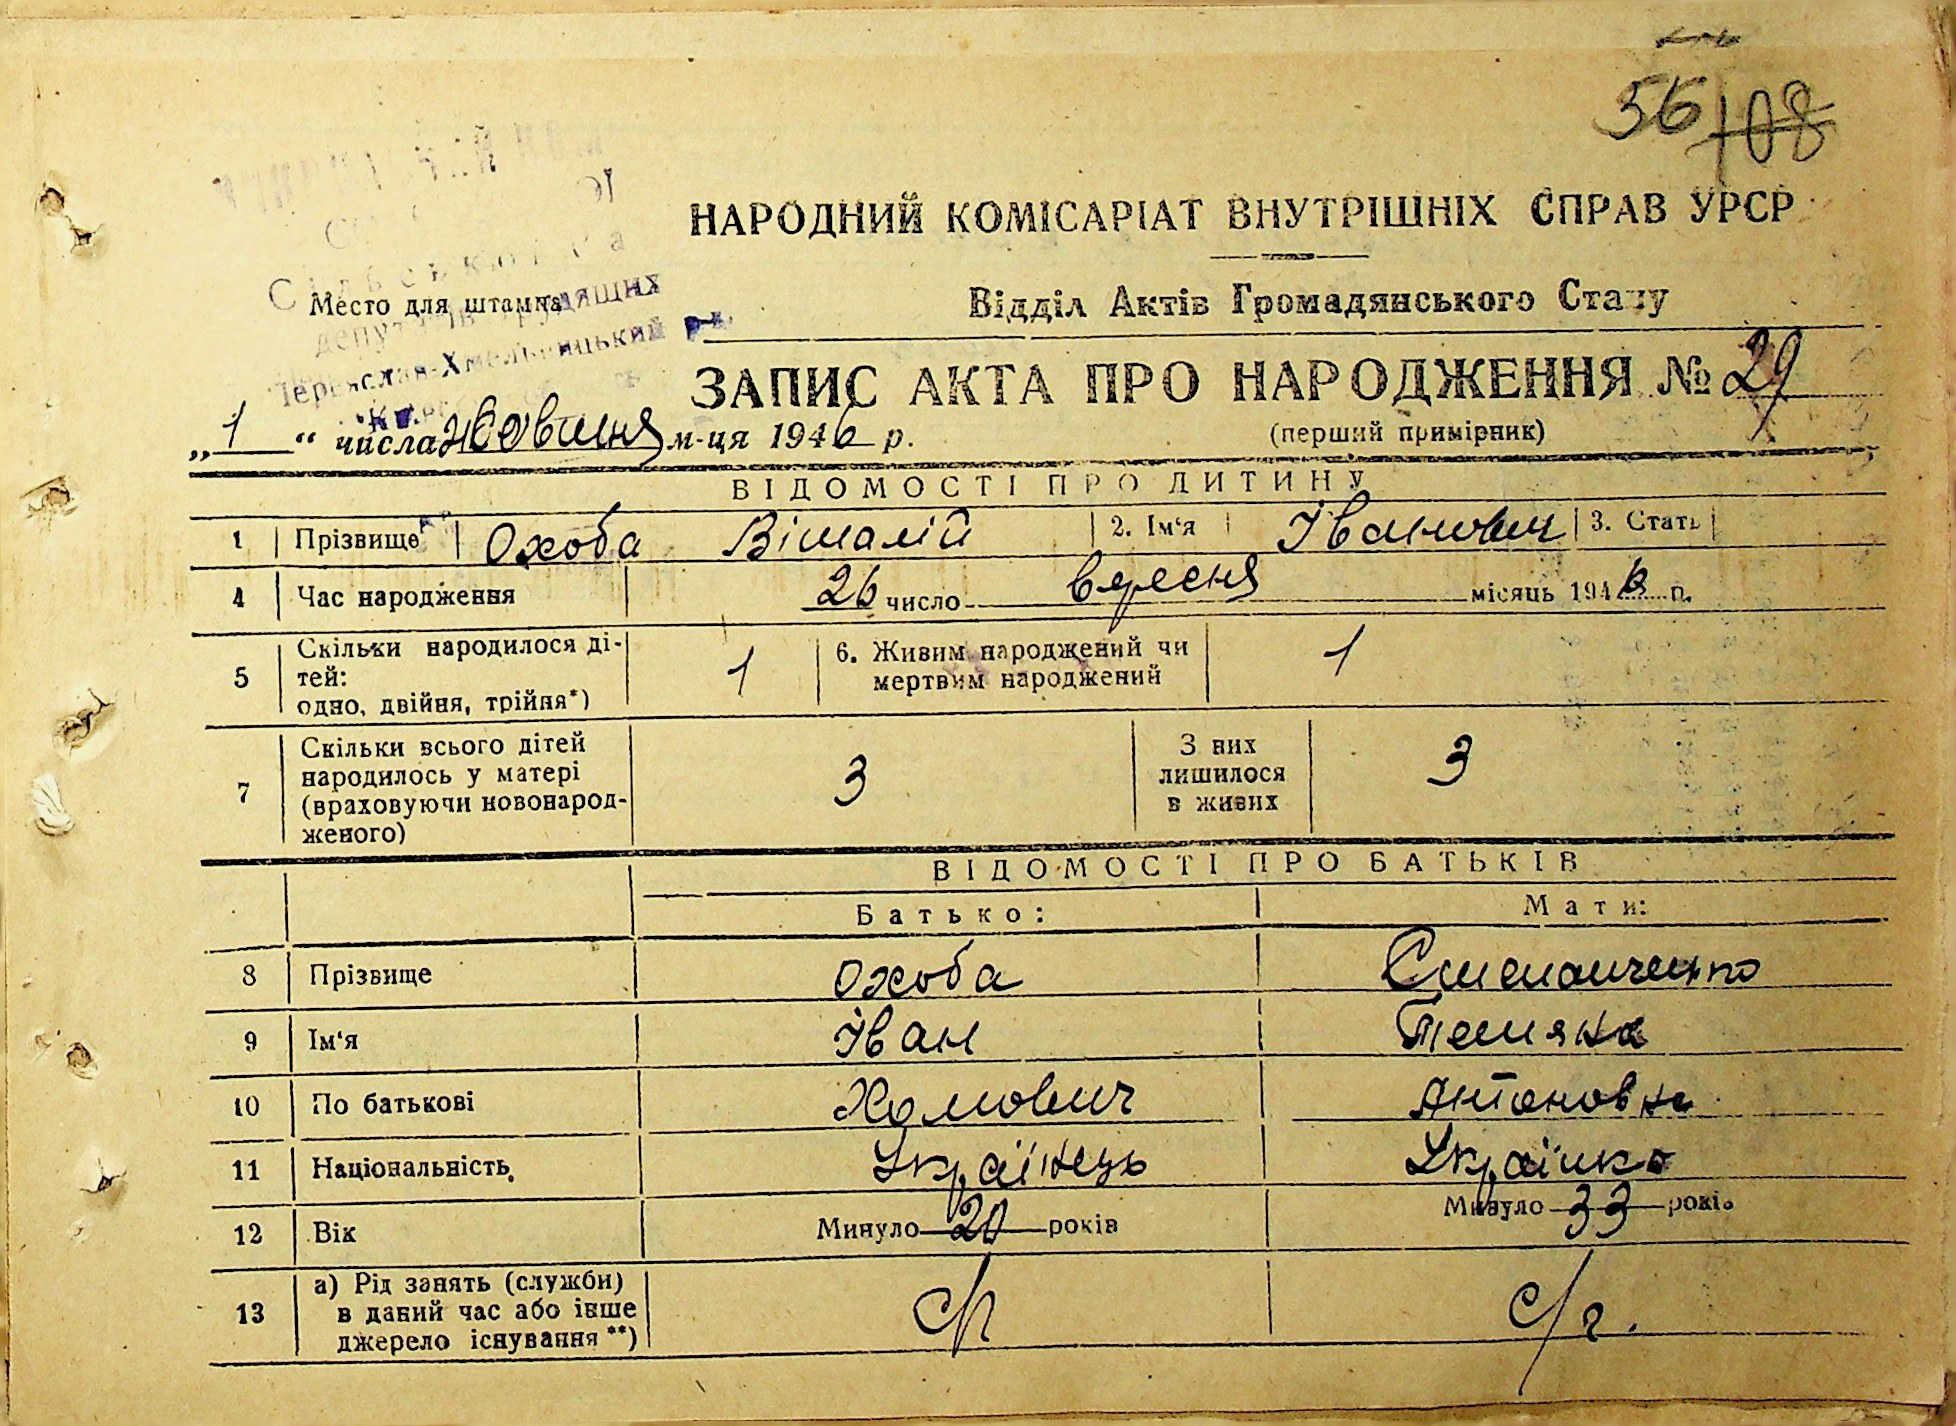 56 108
НАРОДНИЙ КОМІСАРІАТ ВНУТРІШНІХ СПРАВ УРСР
Место для штампа
трудящих
Відділ Актів Громадянського Стану
Переяслав-Хмельницький р-н.
ЗАПИС АКТА ПРО НАРОДЖЕННЯ № 29
„1“ числа жовтня м-ця 1946 р.
(перший примірник)
ВІДОМОСТІ ПРО ДИТИНУ
1 Прізвище Охоба Віталій 2. Ім'я Іванович 3. Стать
4 Час народження 26 число вересня місяць 1946 р.
5 Скільки народилося ді-
тей:
одно, двійня, трійня*) 1
6. Живим народжений чи
мертвим народжений 1
7 Скільки всього дітей
народилось у матері
(враховуючи новонарод-
женого) 3
З них
лишилося
в живих 3
ВІДОМОСТІ ПРО БАТЬКІВ
Батько: Мати:
8 Прізвище Охоба Степанченко
9 Ім'я Іван Тетяна
10 По батькові Хомович Антоновна
11 Національність Українець Українка
12 Вік Минуло 20 років Минуло 33 років
13 а) Рід занять (служби)
в даний час або інше
джерело існування **)